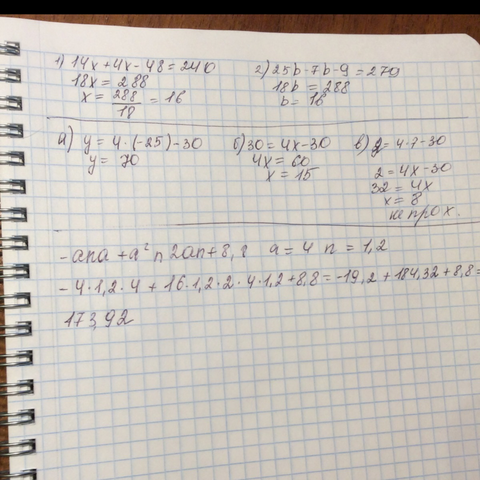 1) 14x + 4x - 48 = 240
18x = 288
x = 288/18 = 16
2) 25b - 7b - 9 = 279
18b = 288
b = 16
а) y = 4 · (-25) - 30
y = 70
б) 30 = 4x - 30
4x = 60
x = 15
в) y = 4 · 7 - 30
2 = 4x - 30
32 = 4x
x = 8
не прох.
- ana + a² n 2an + 8,8 a = 4 n = 1,2
- 4 · 1,2 · 4 + 16 · 1,2 · 2 · 4 · 1,2 + 8,8 = -19,2 + 184,32 + 8,8 =
173,92